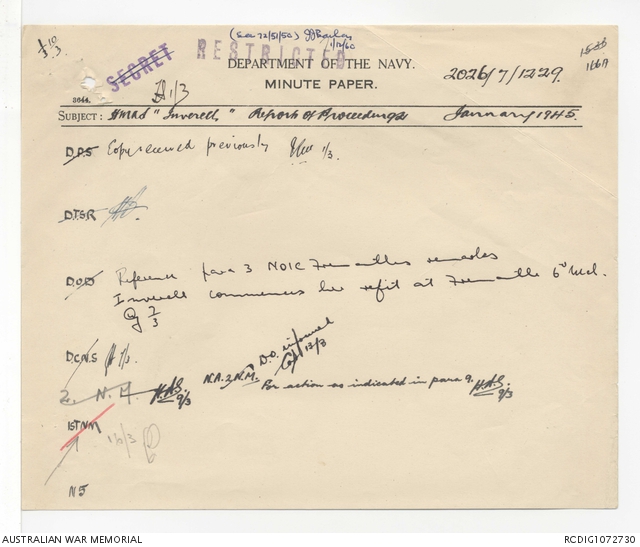 (See 72/51/50)
1/12/60
SECRET RESTRICTED
DEPARTMENT OF THE NAVY.
MINUTE PAPER.
2026/7/1229.
166A
1/3
3644.
SUBJECT: HMAS "Inverell" Reports of Proceedings January 1945.
D.P.S Copy received previously 1/3.
D.T.S.R
D.O.D Reference para 3 NOIC Fremantle's remarks
Inverell commences her refit at Fremantle 6th Mch.
2/3
D.C.N.S 7/3.
D.O. informed
13/3
2.N.M. H.A.S. 9/3
N.A. 2 N.M. For action as indicated in para 9. H.A.S. 9/3
1ST N.M
10/3
N5
AUSTRALIAN WAR MEMORIAL
RCDIG1072730